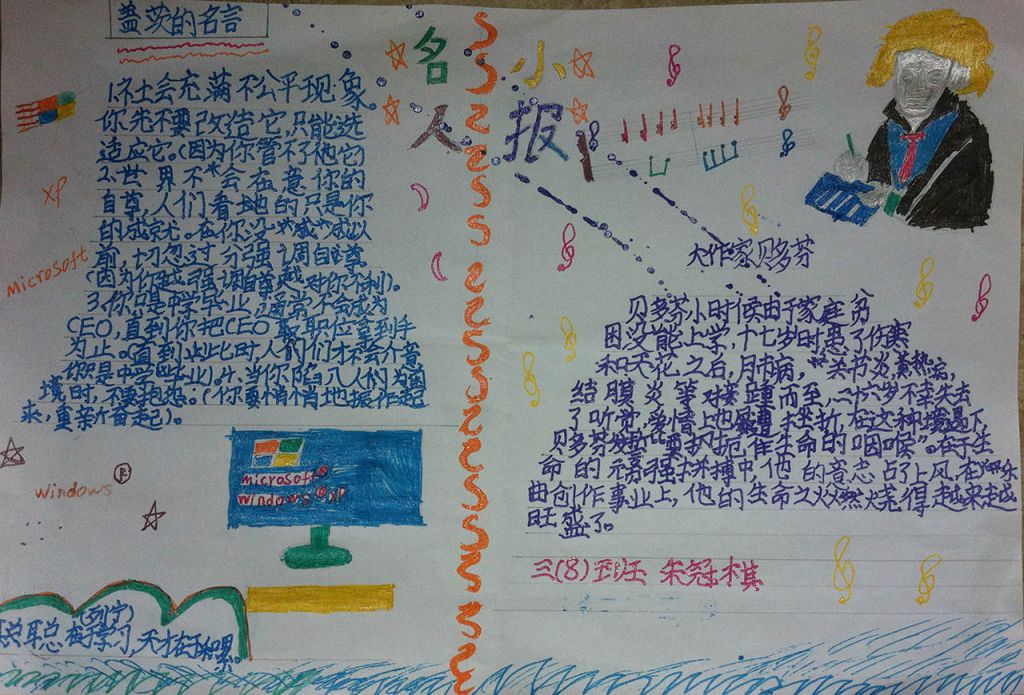 盖茨的名言
名人
小报
1.社会充满不公平现象。
你先不要改造它,只能选
适应它。(因为你管不了他它)
2.世界不会在意你的
自尊,人们看地的只是你
的成就。在你没成成以
前,切忽过分强调自尊
(因为你越强调自尊越对你不利)。
3.你只是中学毕业,通常不会成为
CEO,直到你把CEO职位拿到手
为止。(直到此时,人们们才不会介意
你只是中学毕业)。4.当你陷入人们为
境时,不要抱怨。(你要悄悄地操作起
来,重亲斤奋起)。
XP
Microsoft
microsoft®
windows®XP
windows ®
(列宁)
聪在于学习,天才在于积累。
大作家贝多芬
贝多芬小时候由于家庭贫
困没能上学,十七岁时患了伤寒
和天花之后,肺病,关节炎,黄热病,
结膜炎等接踵而至,二十六岁不幸失去
了听觉,爱情上也屡遭挫折,在这种境遇下,
贝多芬发誓“要扼住生命的咽喉”。在于生
命的顽强拼搏中,他的意志占了上风,在乐
曲创作事业上,他的生命之火燃烧得越来越
旺盛了。
三(8)班 朱冠棋